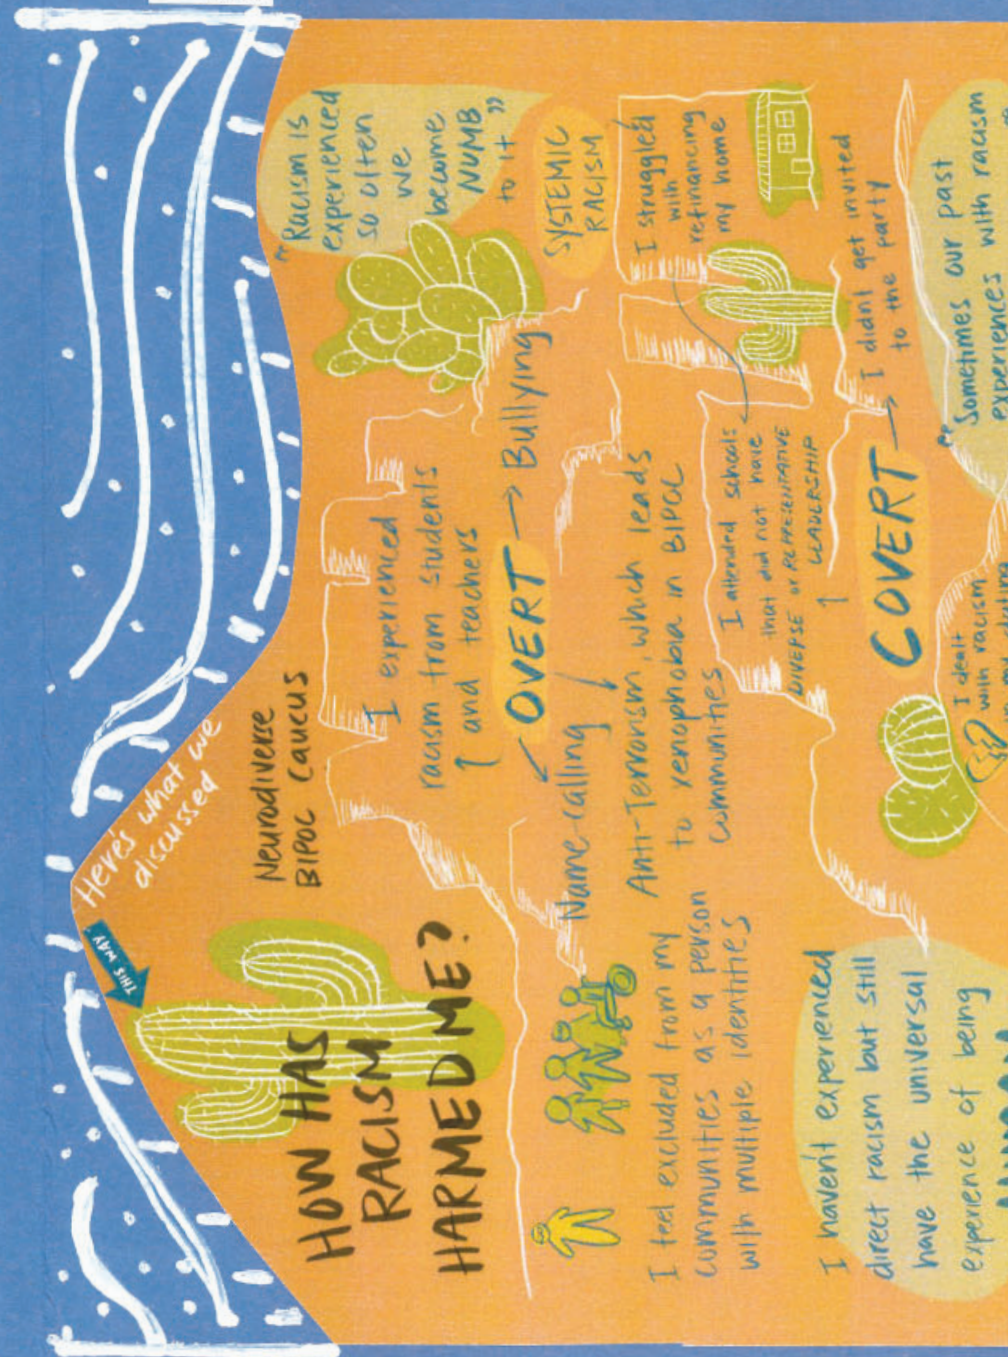 Here's what we
discussed
THIS WAY
Neurodiverse
BIPOC Caucus
HOW HAS
RACISM
HARMED ME?
"Racism is
experienced
so often
we
become
NUMB
to it"
I experienced
racism from students
and teachers
OVERT → Bullying
Name-calling
Anti-Terrorism, which leads
to xenophobia in BIPOC
communities
SYSTEMIC
RACISM
I struggled
with
refinancing
my home
I attended schools
that did not have
DIVERSE or REPRESENTATIVE
LEADERSHIP
COVERT → I didnt get invited
to the party
I feel excluded from my
communities as a person
with multiple identities
I haven't experienced
direct racism but still
have the universal
experience of being
I dealt
with racism
"Sometimes our past
experiences with racism